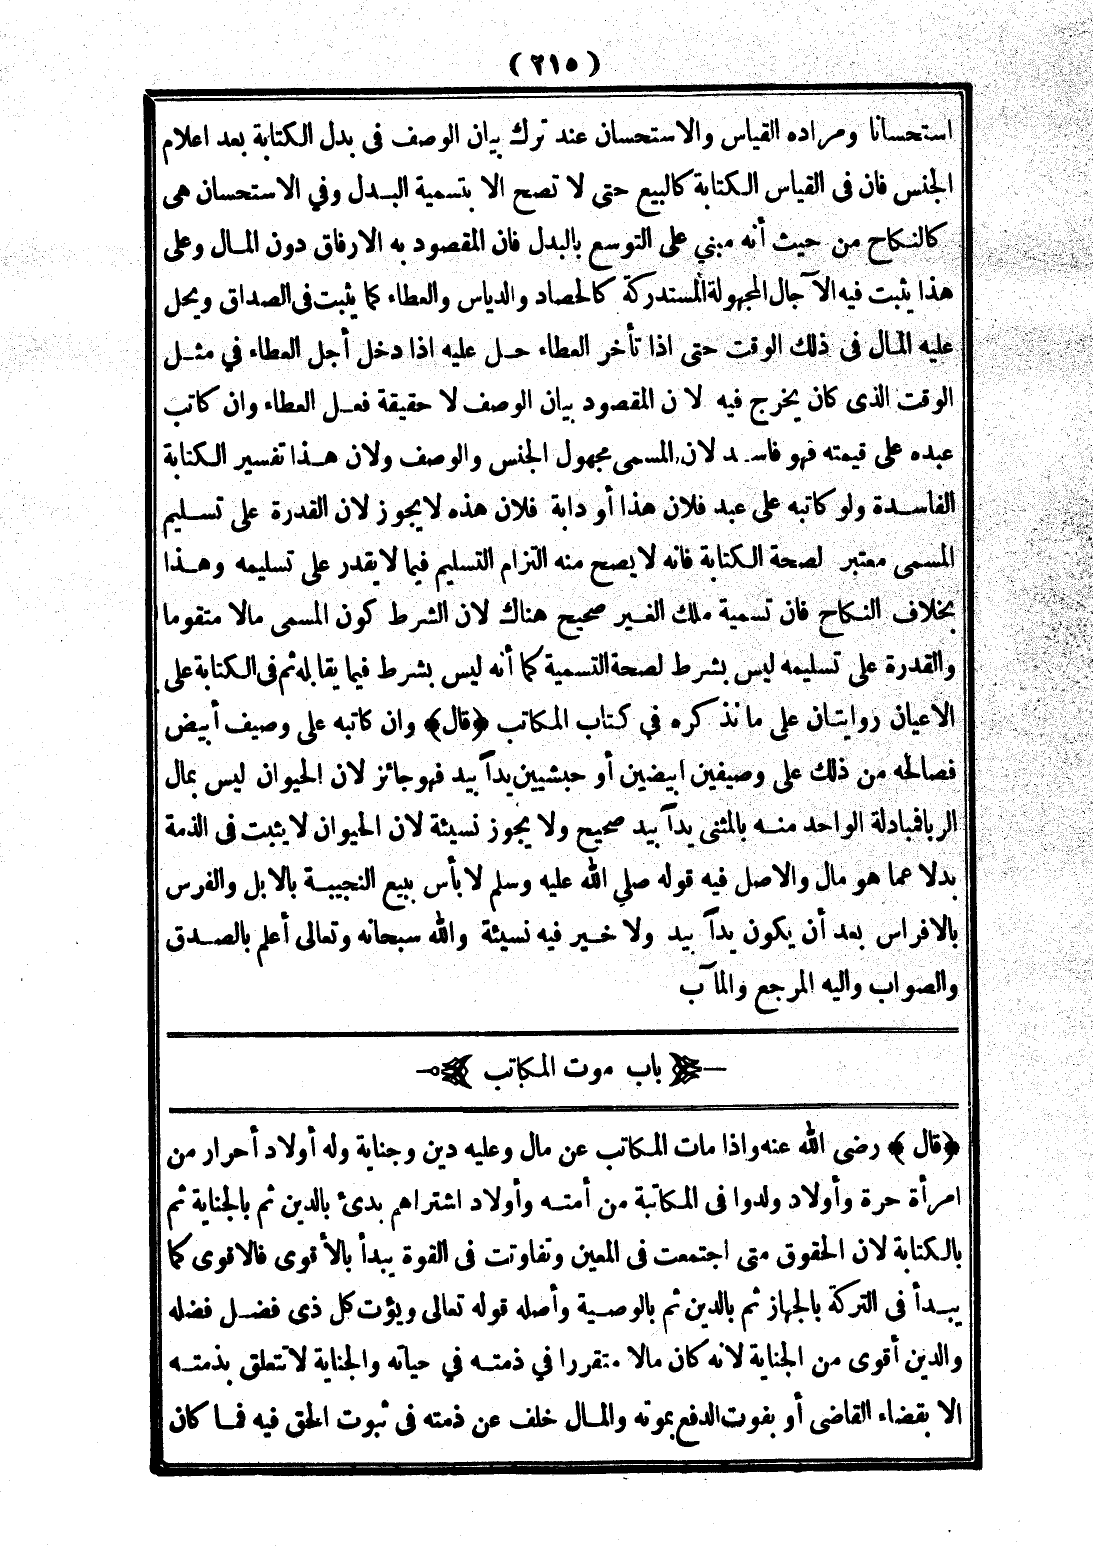 (٢١٥)
استحسانا ومراده القياس والاستحسان عند ترك بيان الوصف فى بدل الكتابة بعد اعلام
الجنس فان فى القياس الكتابة كالبيع حتى لا تصح الا بتسمية البدل وفي الاستحسان هى
كالنكاح من حيث أنه مبني على التوسع بالبدل فان المقصود به الارفاق دون المال وعلى
هذا يثبت فيه الآجال المجهولة المستدركة كالحصاد والدياس والعطاء كما يثبت فى الصداق ويحل
عليه المال فى ذلك الوقت حتى اذا تأخر العطاء حل عليه اذا دخل أجل العطاء في مثل
الوقت الذى كان يخرج فيه لان المقصود بيان الوصف لا حقيقة فعل العطاء وان كاتب
عبده على قيمته فهو فاسد لان المسمى مجهول الجنس والوصف ولان هذا تفسير الكتابة
الفاسدة ولو كاتبه على عبد فلان هذا أو دابة فلان هذه لا يجوز لان القدرة على تسليم
المسمى معتبر لصحة الكتابة فانه لا يصح منه التزام التسليم فيما لا يقدر على تسليمه وهذا
بخلاف النكاح فان تسمية ملك الغير صحيح هناك لان الشرط كون المسمى مالا متقوما
والقدرة على تسليمه ليس بشرط لصحة التسمية كما أنه ليس بشرط فيما يقابله ثم فى الكتابة على
الاعيان روايتان على ما نذكره في كتاب المكاتب ﴿قال﴾ وان كاتبه على وصيف أبيض
فصالحه من ذلك على وصيفين ابيضين أو حبشيين يدآ بيد فهو جائز لان الحيوان ليس بمال
الربا فمبادلة الواحد منه بالمثنى يدآ بيد صحيح ولا يجوز نسيئة لان الحيوان لا يثبت فى الذمة
بدلا عما هو مال والاصل فيه قوله صلي الله عليه وسلم لا بأس ببيع النجيبة بالابل والفرس
بالافراس بعد أن يكون يدآ بيد ولا خير فيه نسيئة والله سبحانه وتعالى أعلم بالصدق
والصواب واليه المرجع والمآب
باب موت المكاتب
﴿قال﴾ رضى الله عنه واذا مات المكاتب عن مال وعليه دين وجناية وله أولاد أحرار من
امرأة حرة وأولاد ولدوا فى المكاتبة من أمته وأولاد اشتراهم بدئ بالدين ثم بالجناية ثم
بالكتابة لان الحقوق متى اجتمعت فى المعين وتفاوتت فى القوة يبدأ بالأقوى فالاقوى كما
يبدأ فى التركة بالجهاز ثم بالدين ثم بالوصية وأصله قوله تعالى ويؤت كل ذى فضل فضله
والدين أقوى من الجناية لانه كان مالا متقررا في ذمته في حياته والجناية لا تتعلق بذمته
الا بقضاء القاضى أو بفوت الدفع بموته والمال خلف عن ذمته فى ثبوت الحق فيه فما كان